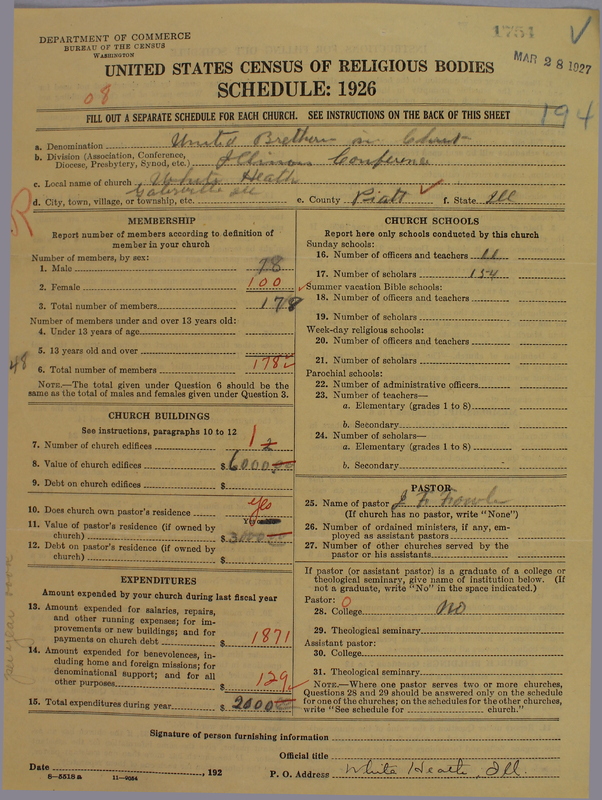 DEPARTMENT OF COMMERCE
BUREAU OF THE CENSUS
WASHINGTON
1754
MAR 28 1927
UNITED STATES CENSUS OF RELIGIOUS BODIES
SCHEDULE: 1926
08
FILL OUT A SEPARATE SCHEDULE FOR EACH CHURCH. SEE INSTRUCTIONS ON THE BACK OF THIS SHEET
194
a. Denomination United Brethern in Christ
b. Division (Association, Conference, Diocese, Presbytery, Synod, etc.) Illinois Conference
c. Local name of church White Heath
d. City, town, village, or township, etc. e. County Piatt f. State Ill
MEMBERSHIP
Report number of members according to definition of member in your church
Number of members, by sex:
1. Male 78
2. Female 100
3. Total number of members 178
Number of members under and over 13 years old:
4. Under 13 years of age
5. 13 years old and over
6. Total number of members 178
48
NOTE.—The total given under Question 6 should be the same as the total of males and females given under Question 3.
CHURCH BUILDINGS
See instructions, paragraphs 10 to 12
7. Number of church edifices 1 2
8. Value of church edifices $6000.00
9. Debt on church edifices $
10. Does church own pastor's residence? yes
11. Value of pastor's residence (if owned by church) $3000
12. Debt on pastor's residence (if owned by church) $
EXPENDITURES
Amount expended by your church during last fiscal year
13. Amount expended for salaries, repairs, and other running expenses; for improvements or new buildings; and for payments on church debt $1871
14. Amount expended for benevolences, including home and foreign missions; for denominational support; and for all other purposes $129
15. Total expenditures during year $2000
CHURCH SCHOOLS
Report here only schools conducted by this church
Sunday schools:
16. Number of officers and teachers 11
17. Number of scholars 154
Summer vacation Bible schools:
18. Number of officers and teachers
19. Number of scholars
Week-day religious schools:
20. Number of officers and teachers
21. Number of scholars
Parochial schools:
22. Number of administrative officers
23. Number of teachers—
a. Elementary (grades 1 to 8)
b. Secondary
24. Number of scholars—
a. Elementary (grades 1 to 8)
b. Secondary
PASTOR
25. Name of pastor
(If church has no pastor, write "None")
26. Number of ordained ministers, if any, employed as assistant pastors
27. Number of other churches served by the pastor or his assistants
If pastor (or assistant pastor) is a graduate of a college or theological seminary, give name of institution below. (If not a graduate, write "No" in the space indicated.)
Pastor: 0
28. College No
29. Theological seminary
Assistant pastor:
30. College
31. Theological seminary
NOTE.—Where one pastor serves two or more churches, Questions 28 and 29 should be answered only on the schedule for one of the churches; on the schedules for the other churches, write "See schedule for church."
Signature of person furnishing information
Official title
Date , 192
P. O. Address White Heath, Ill.
8-5518 a 11-9054